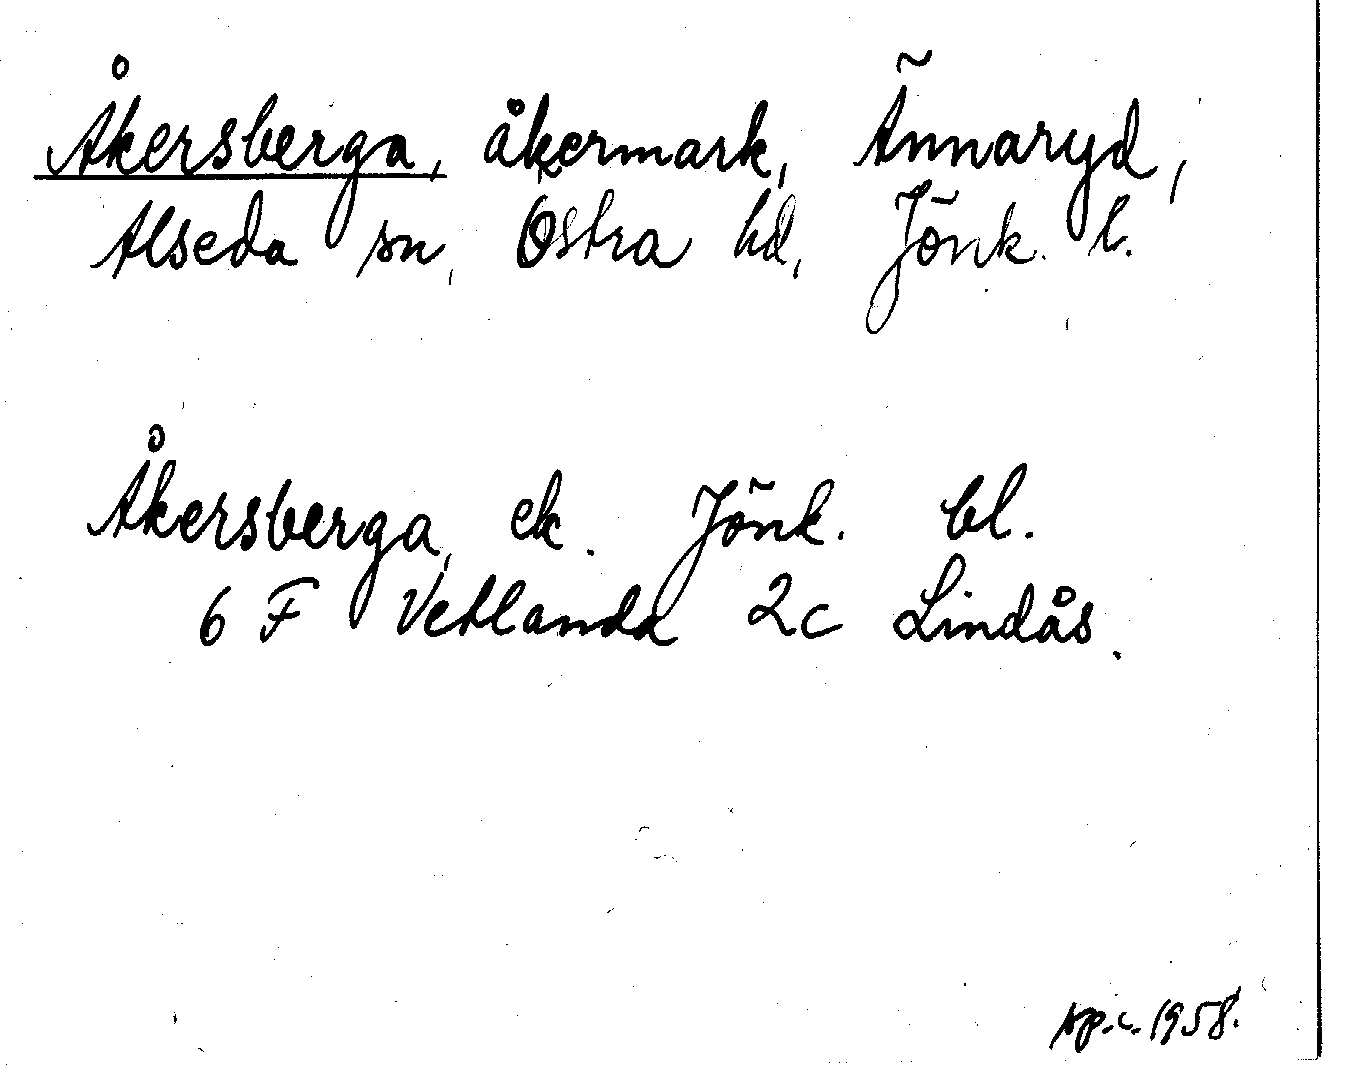 Åkersberga, åkermark, Ännaryd,
Alseda sn, Östra hd, Jönk. l.
Åkersberga, ek. Jönk. bl.
6 F Vetlanda 2c Lindås.
1958.